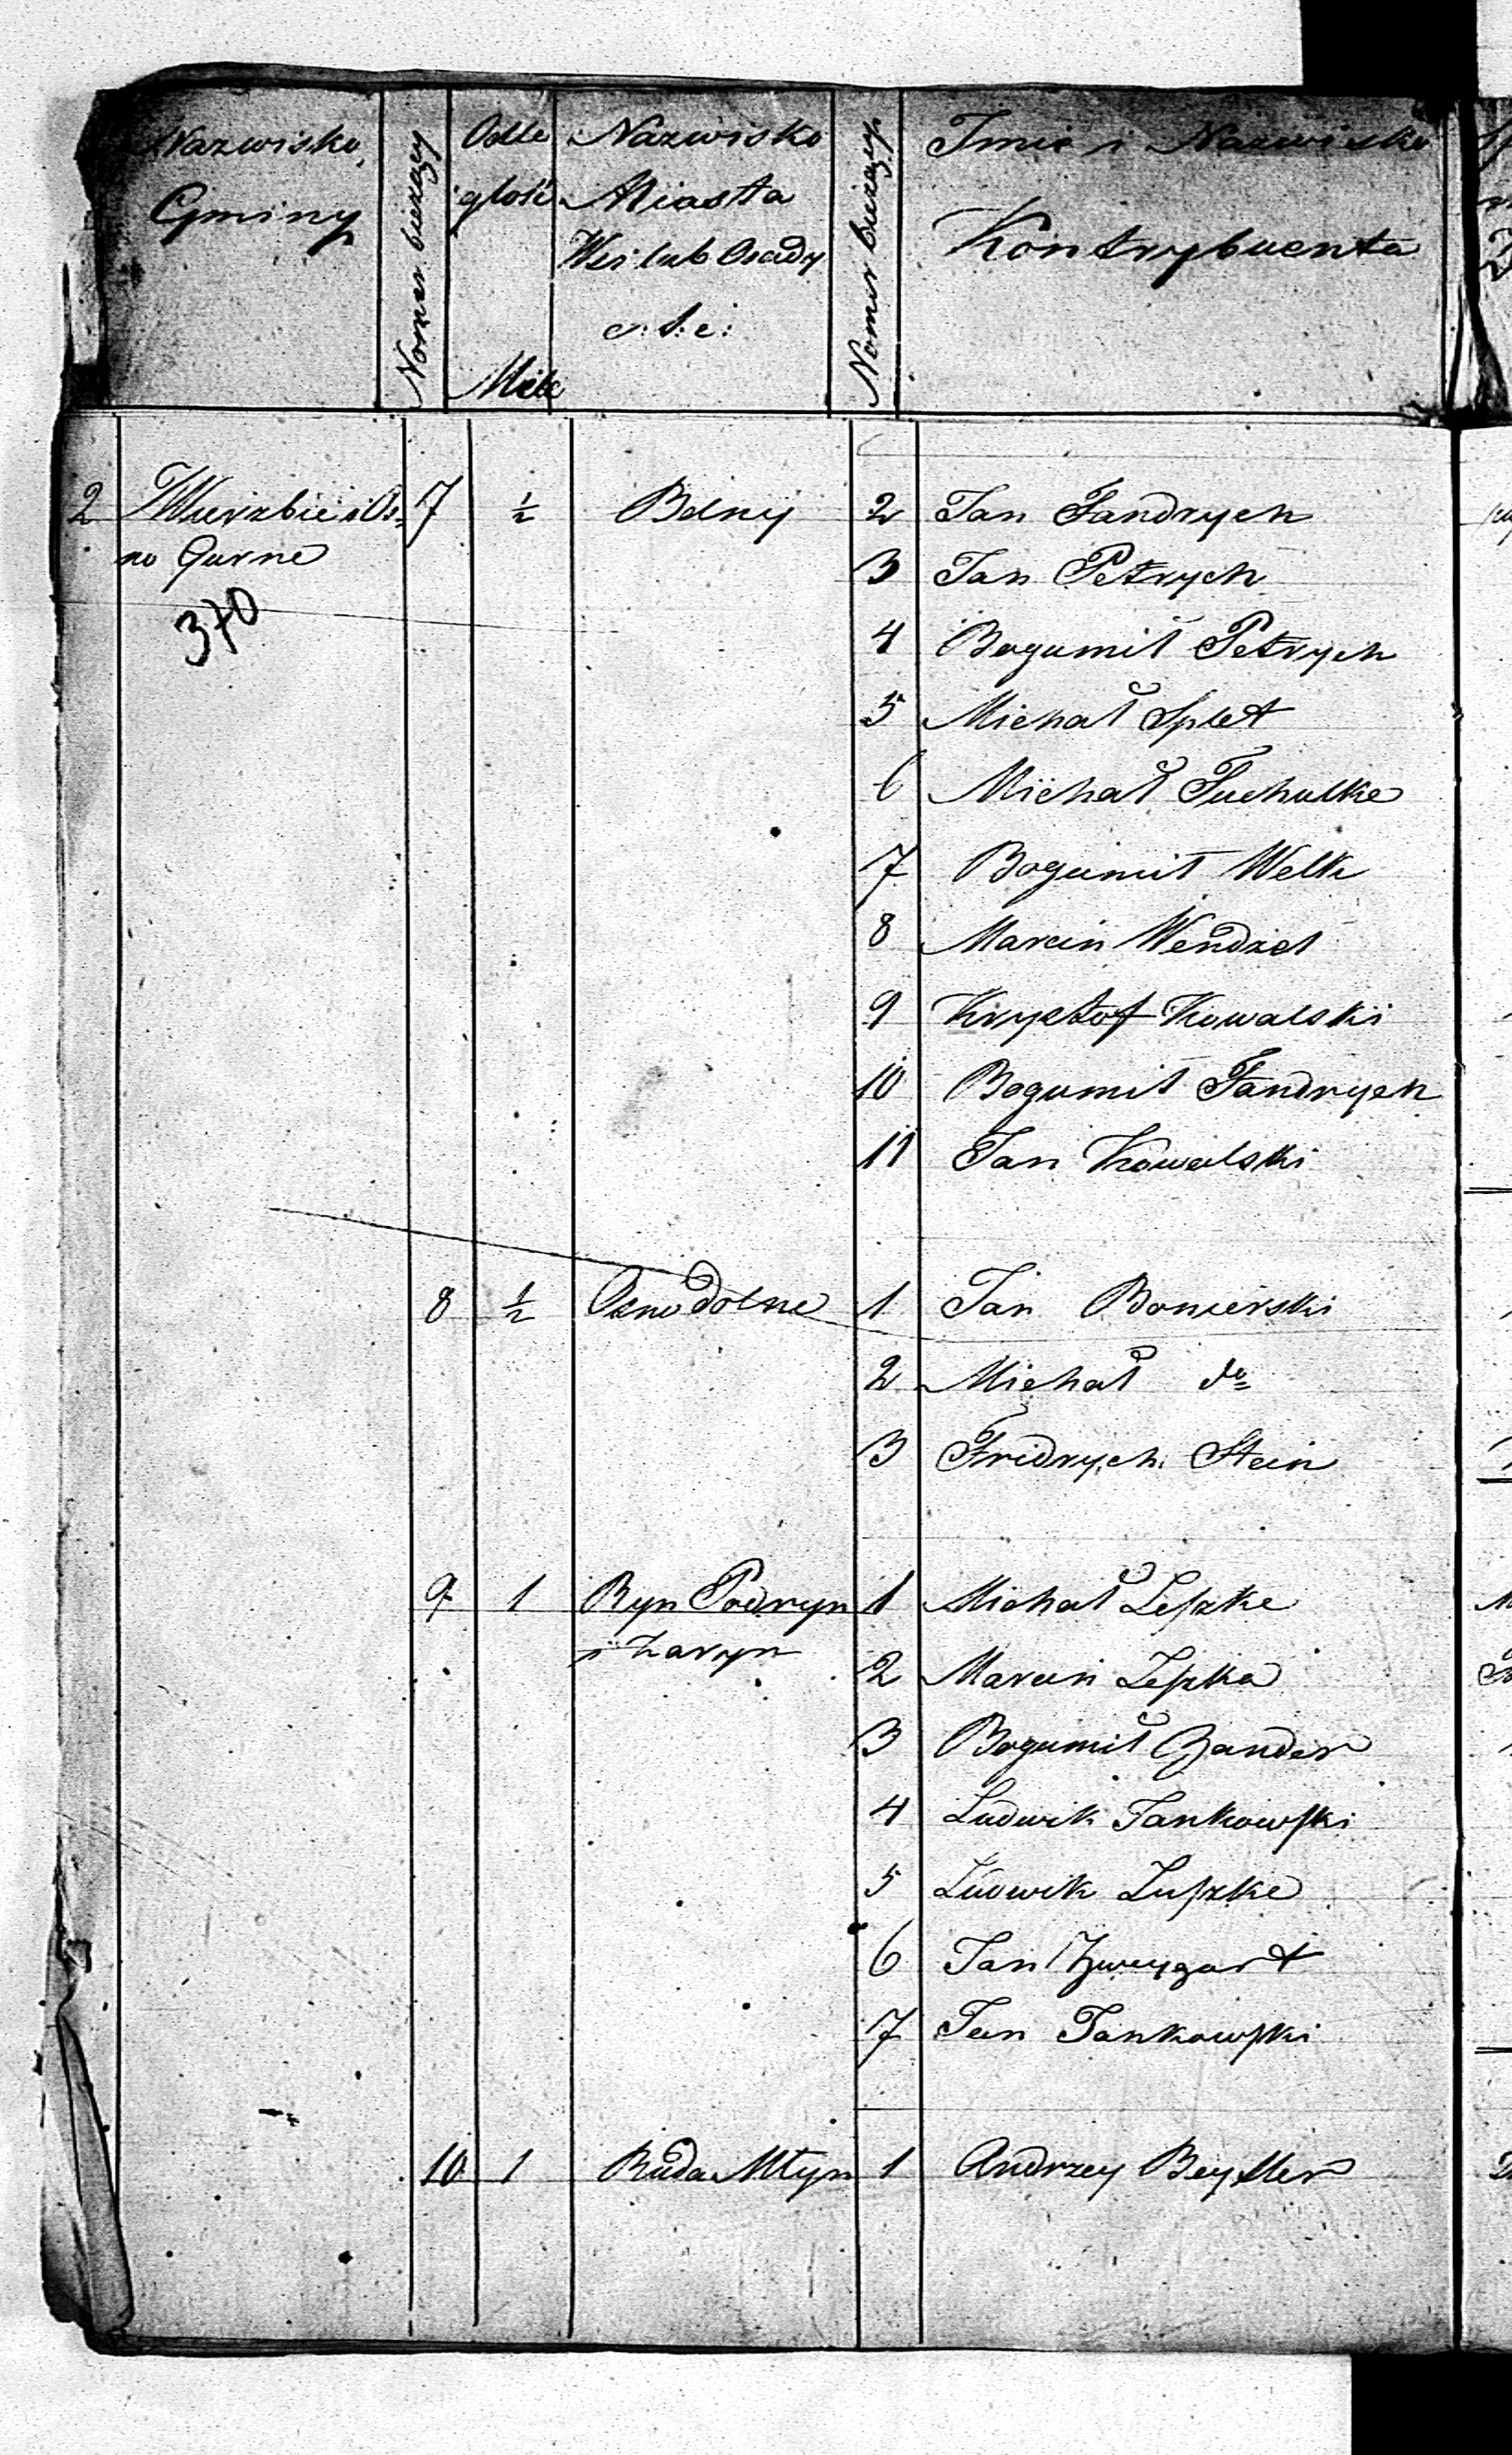 Nazwisko Gminy | Nomer bieżący | Odle głość Mile | Nazwisko Miasta Wsi lub Osady e: t: c: | Nomer bieżący | Imie i Nazwisko Kontrybuenta
2 Wierzbie i Os= 7 ½ Belny 2 Jan Fandrych
no Gurne 3 Jan Petrych
370
4 Bogumił Petrych
5 Michał Splet
6 Michał Tuchulke
7 Bogumił Welk
8 Marcin Wendzel
9 Krysztof Kowalski
10 Bogumił Fandrych
11 Jan Kowalski
8 ½ Osno Dolne 1 Jan Bonierski
2 Michał do
3 Fridrych Stein
9 1 Ryn Podryn 1 Michał Lepzke
i Zaryn 2 Marcin Lepzka
3 Bogumił Zander
4 Ludwik Jankowski
5 Ludwik Lupzke
6 Jan Zweygart
7 Jan Jankowski
10 1 Ruda Młyn 1 Andrzey Beysler